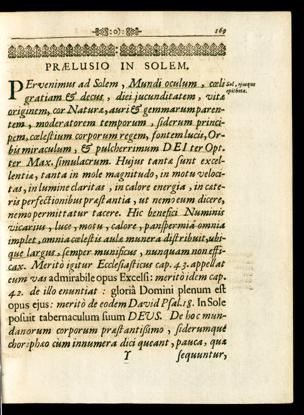 ·:(o):· 169
PRÆLUSIO IN SOLEM.
PErvenimus ad Solem, Mundi oculum, cœli
Sol, ejusque
epitheta.
gratiam & decus, diei jucunditatem, vitæ
originem, cor Naturæ, auri & gemmarum paren-
tem, moderatorem temporum, siderum princi-
pem, cœlestium corporum regem, fontem lucis, Or-
bis miraculum, & pulcherrimum DEI ter Opt-
ter Max. simulacrum. Hujus tanta sunt excel-
lentia, tanta in mole magnitudo, in motu veloci-
tas, in lumine claritas, in calore energia, in cæte-
ris perfectionibus præstantia, ut nemo eum dicere,
nemo permittatur tacere. Hic benefici Numinis
vicarius, luce, motu, calore, panspermia omnia
implet, omnia cœlestis aulæ munera distribuit, ubi-
que largus, semper munificus, nunquam non effi-
cax. Meritò igitur Ecclesiasticus cap. 43. appellat
eum vas admirabile opus Excelsi: meritò idem cap.
42. de illo enuntiat: gloriâ Domini plenum est
opus ejus: meritò de eodem David Psal. 18. In Sole
posuit tabernaculum suum DEUS. De hoc mun-
danorum corporum præstantissimo, siderumque
choriphæo cùm innumera dici queant, pauca, quæ
Y sequuntur,